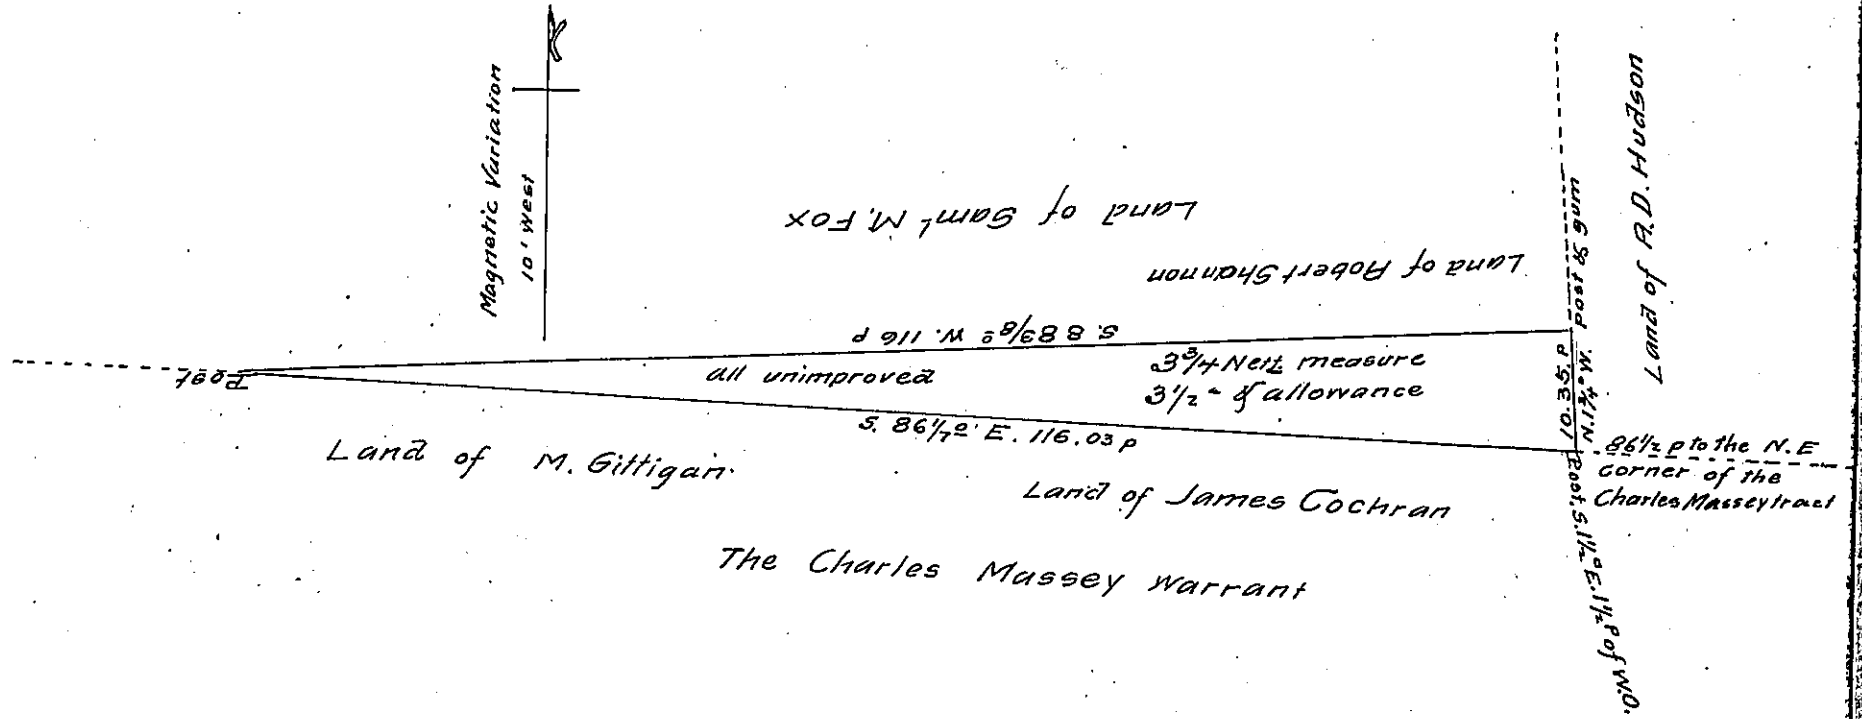 Magnetic Variation
10' West
Land of Sam'l M. Fox
Land of Robert Shannon
S. 88 3/8° W. 116 P
Post
all unimproved
3 3/4 Nett measure
3 1/2 - & allowance
S. 86 1/2° E. 116.03 p
10.35 P
N. 1 3/4° W. Post & gum
Land of A. D. Hudson
86 1/2 p to the N. E
corner of the
Charles Massey tract
Post, S. 1 1/2° E. 1 1/2 P of W.O.
Land of M. Gittigan.
Land of James Cochran
The Charles Massey Warrant